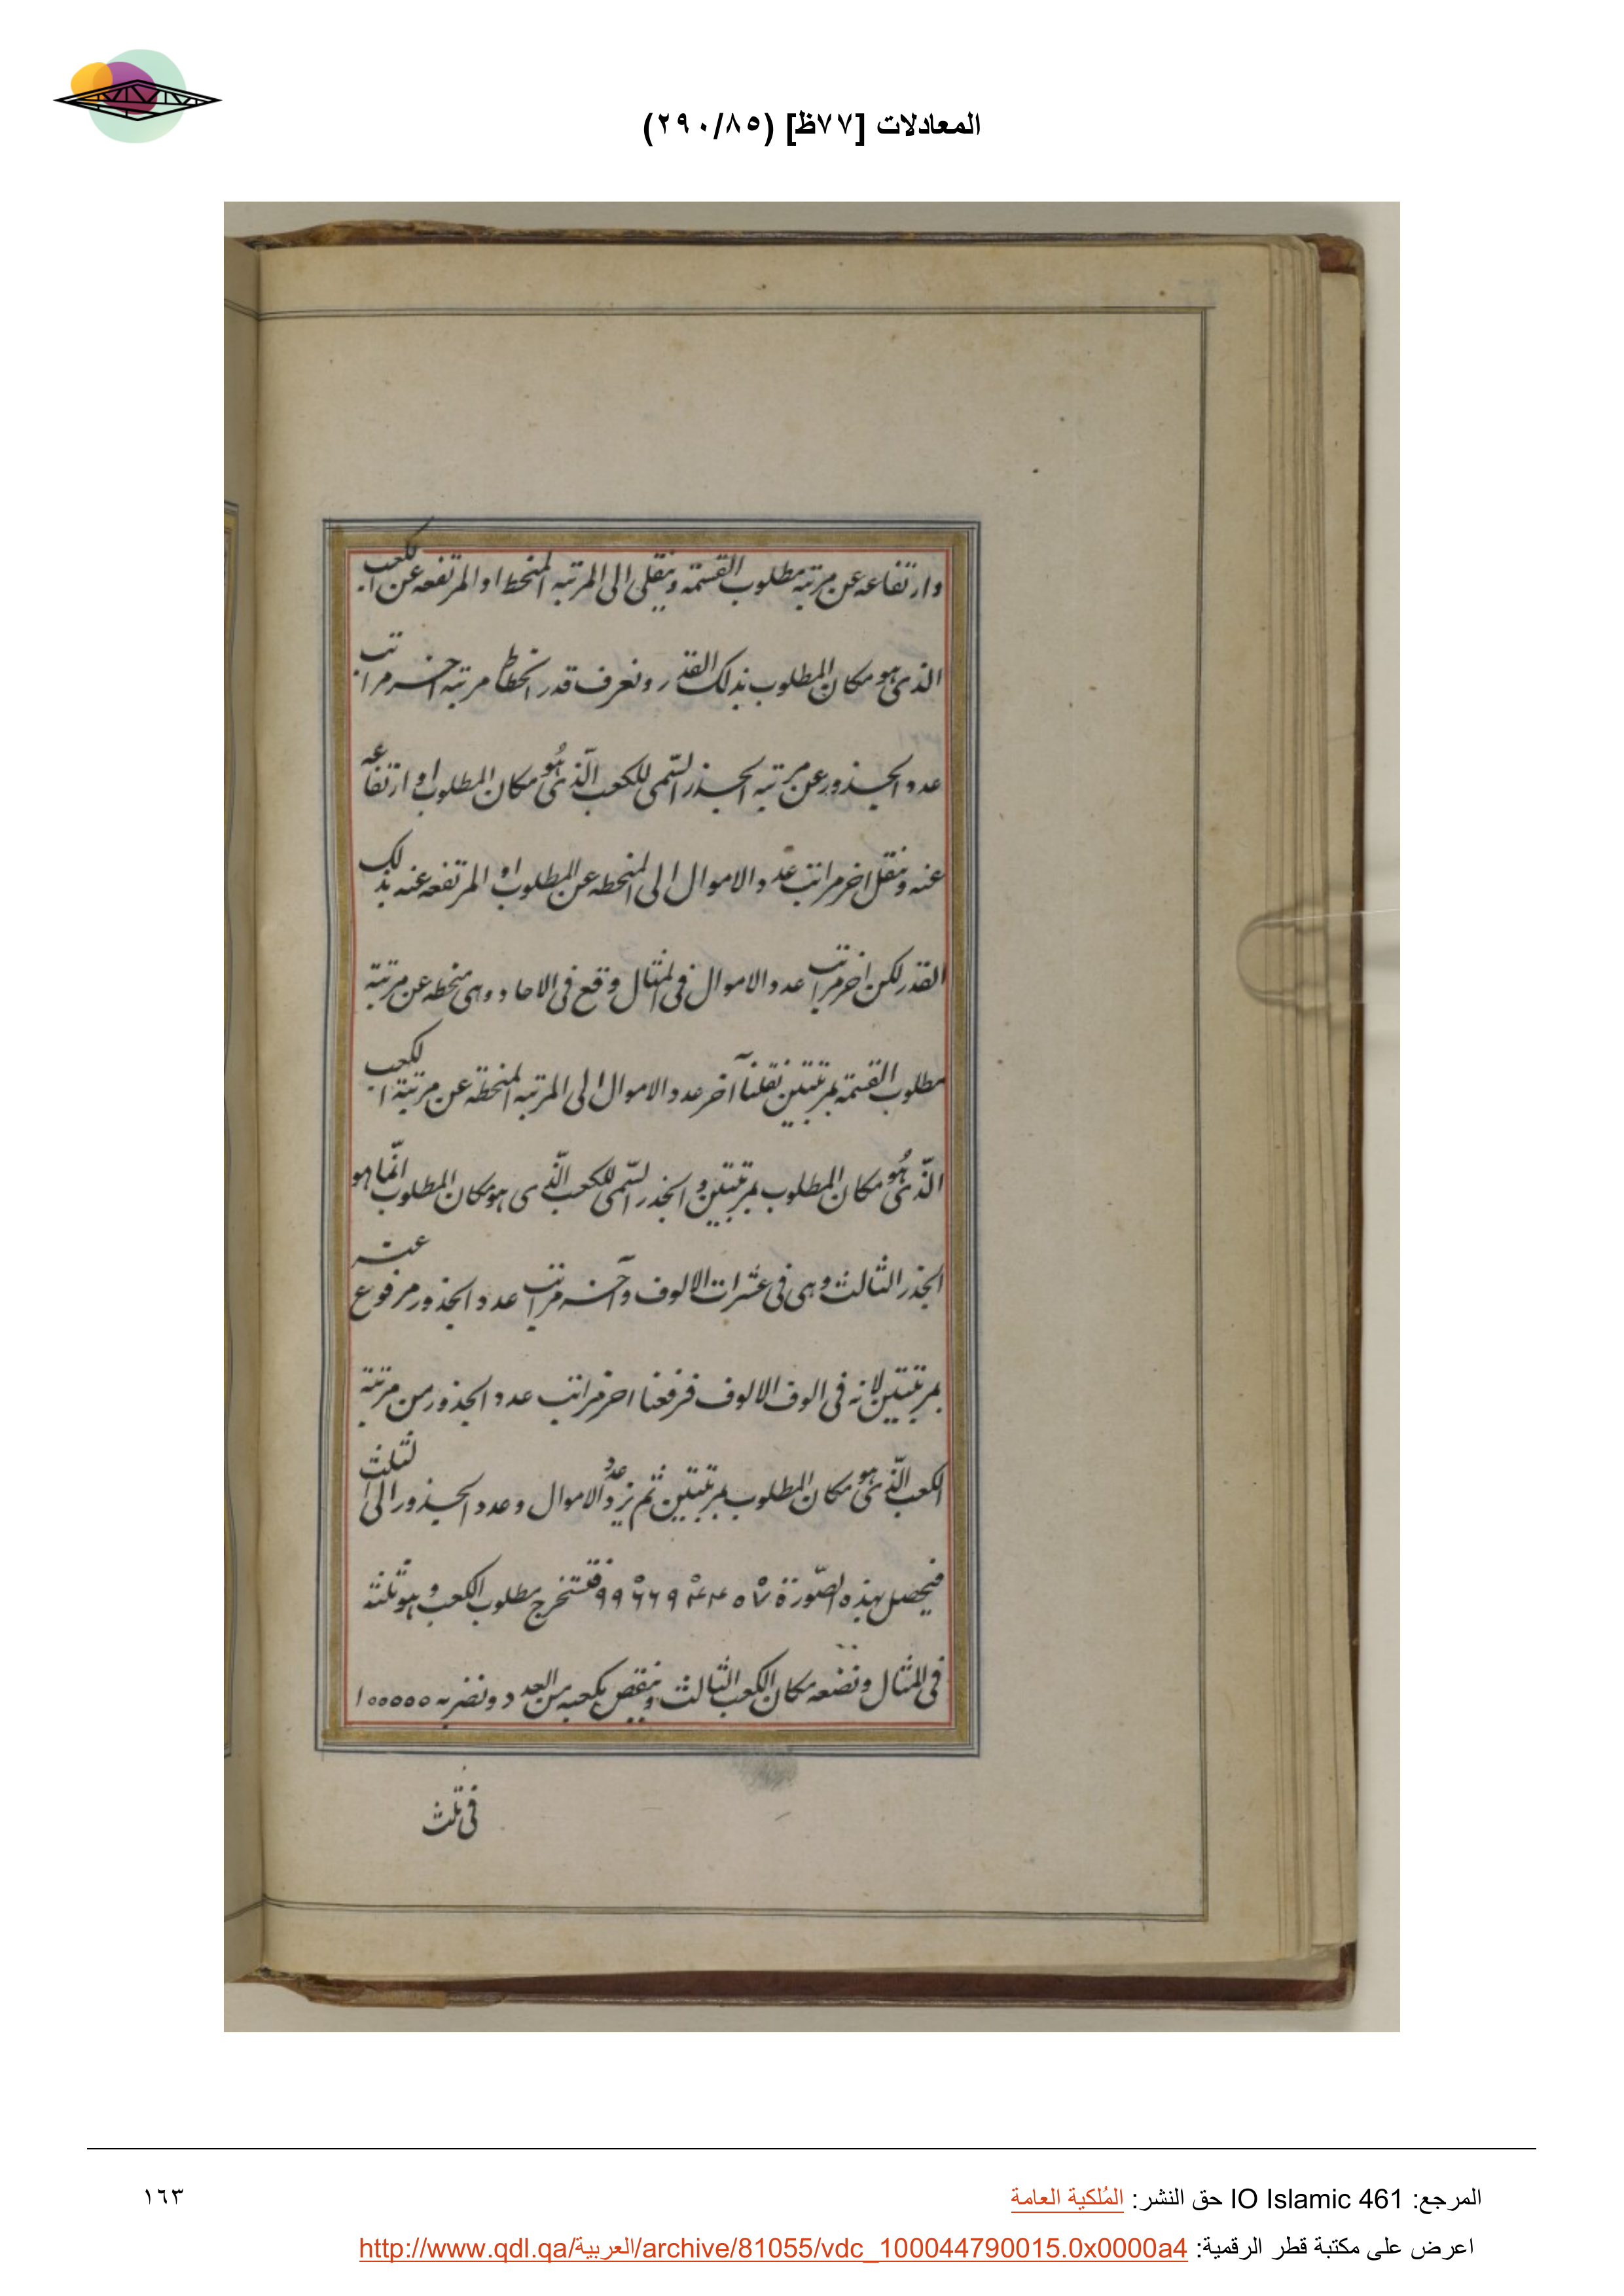 المعادلات [٧٧ظ] (٢٩٠/٨٥)
وارتفاعه عن مرتبه مطلوب القسمة وينقل الى المرتبه المنحط او المرتفعه عن الكعب
الذى هو مكان المطلوب بذلك القدر ونعرف قدر انحطاط مرتبه اخر مراتب
عدد الجذور عن مرتبه الجذر السّمى للكعب الّذى هُو مكان المطلوب او ارتفاعه
عنه وننقل اخر مراتب عدد الاموال الى المنحطه عن المطلوب او المرتفعه عنه بذلك
القدر لكن اخر مراتب عدد الاموال فى المثال وقع فى الاحاد وهى منحطه عن مرتبة
مطلوب القسمة بمرتبتين نقلنا آخر عدد الاموال الى المرتبه المنحطة عن مرتبة الكعب
الّذى هُو مكان المطلوب بمرتبتين والجذر السّمى للكعب الّذى هو مكان المطلوب انّما هو
الجذر الثالث وهى فى عشرات الالوف وآخر مراتب عدد الجذور مرفوع عنه
بمرتبتين لانه فى الوف الالوف فرفعنا اخر مراتب عدد الجذور من مرتبة
الكعب الّذى هو مكان المطلوب بمرتبتين ثم نزد عدد الاموال وعدد الجذور الى الثلث
فيحصل بهذه الصّورة ٩٩٦٦٩٣٤٥٧ فنستخرج مطلوب الكعب وهو ثلثة
فى المثال ونضعه مكان الكعب الثالث وينقص مكعبه من العدد ونضربه ١٠٠٠٠٠
فى ثلث
المرجع: IO Islamic 461 حق النشر: المُلكية العامة
١٦٣
اعرض على مكتبة قطر الرقمية: http://www.qdl.qa/العربية/archive/81055/vdc_100044790015.0x0000a4